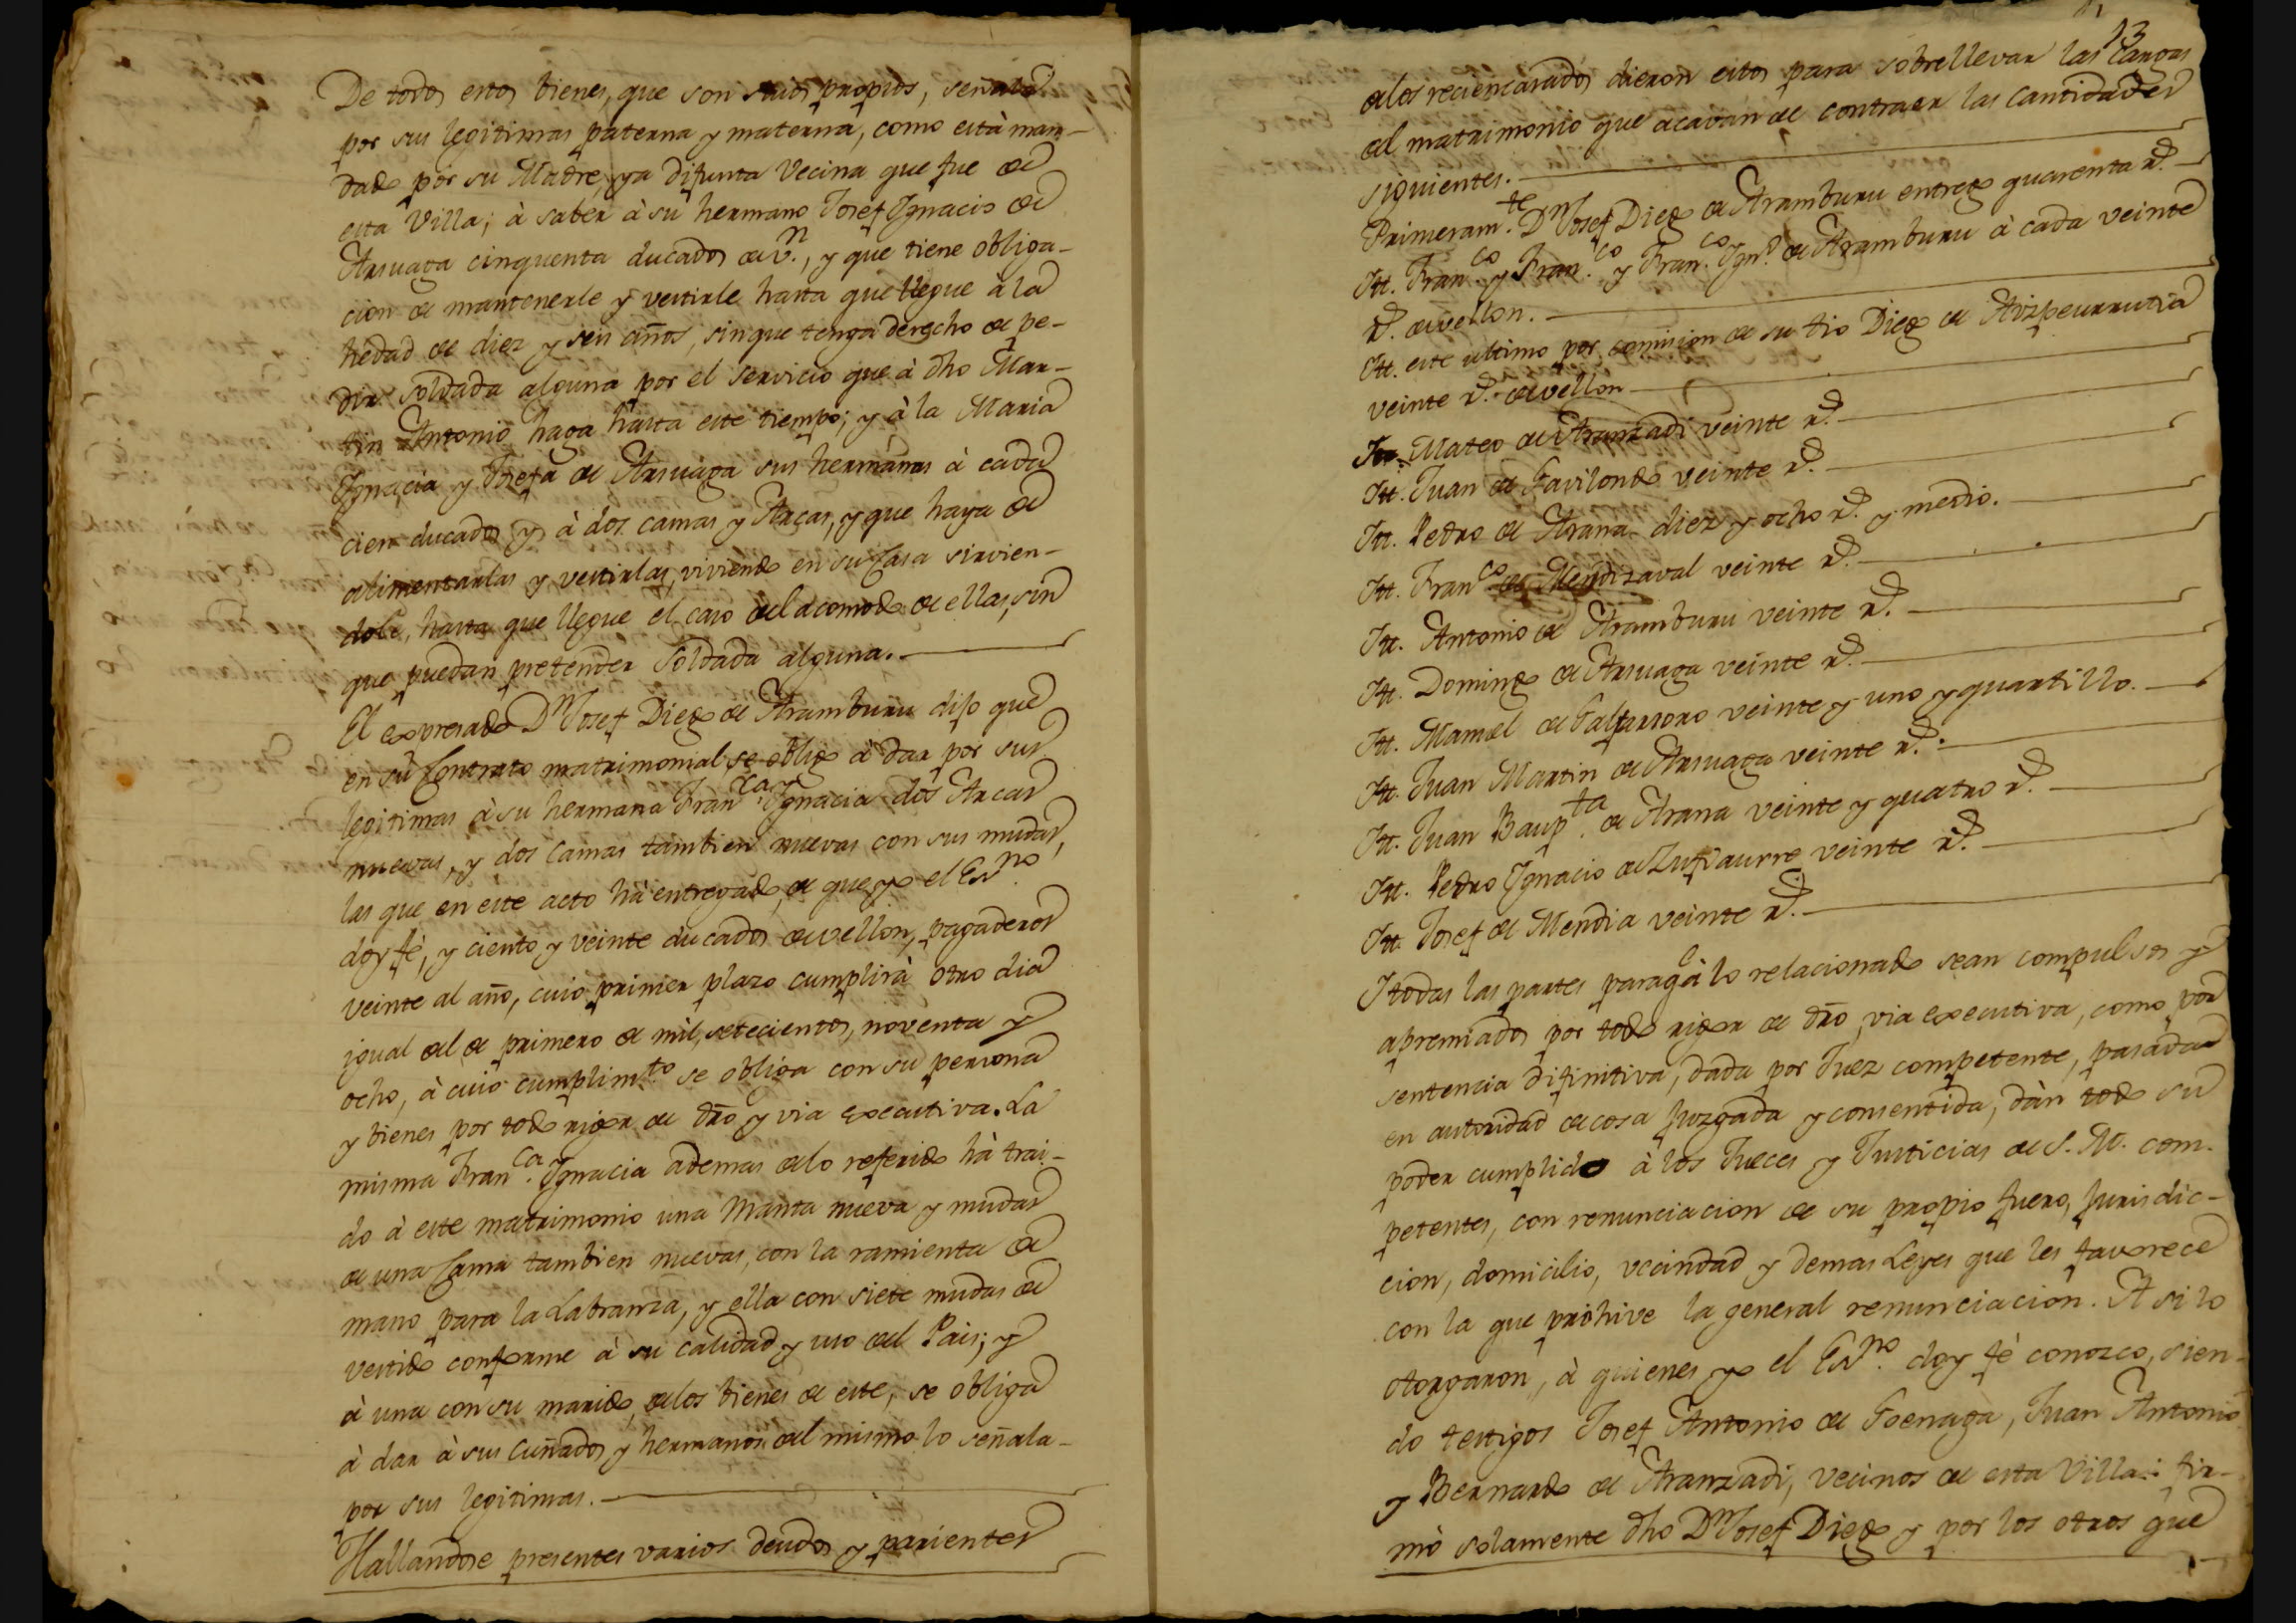 De todos estos bienes, que son suios propios, señala
por sus legitimas paterna y materna, como està man-
dado por su Madre, ya difunta Vecina que fue de
esta Villa; à saber à su hermano Josef Ignacio de
Arsuaga cinquenta ducados de v.n, y que tiene obliga-
cion de mantenerle y vestirle hasta que llegue à la
hedad de diez y seis años, sin que tenga derecho de pe-
dir soldada alguna por el servicio que à dho Mar-
tin Antonio haga hasta este tiempo; y à la Maria
Ignacia y Josefa de Arsuaga sus hermanas à cada
cien ducados y à dos camas y Arcas, y que haya de
alimentarlas y vestirlas, viviendo en su Casa sirvien-
dole, hasta que llegue el caso del acomodo de ellas, sin
que puedan pretender soldada alguna.
El expresado D.n Josef Diego de Aramburu dijo que
en su Contrato matrimonial se obligo à dar por sus
legitimas à su hermana Fran.ca Ignacia dos Arcas
nuevas, y dos camas tambien nuevas con sus mudas,
las que en este acto hà entregado, de que yo el Esno.
doy fè, y ciento y veinte ducados de vellon, pagaderos
veinte al año, cuio primer plazo cumplirà otro dia
igual al de primero de mil, setecientos, noventa y
ocho, à cuio cumplim.to se obliga con su persona
y bienes por todo rigor de dro y via executiva. La
misma Fran.ca Ignacia ademas de lo referido hà trai-
do à este matrimonio una Manta nueva y mudas
de una Cama tambien nuevas, con la ramienta de
mano para la Labranza, y ella con siete mudas de
vestido conforme à su calidad y uso del Pais; y
à una con su marido, de los bienes de este, se obliga
à dar à sus cuñados y hermanos del mismo lo señala-
por sus legitimas.
Hallandose presentes varios deudos y parientes
13
de los reciencasados dieron estos para sobrellevar las cargas
del matrimonio que acavan de contraer las cantidades
siguientes.
Primeram.te D.n Josef Diego de Aramburu entrego quarenta r.s
Itt. Fran.co y Fran.co y Fran.co Ign.o de Aramburu à cada veinte
r.s de vellon.
Itt. este ultimo por comision de su tio Diego de Aizpeurrutia
veinte r.s de vellon
Itt. Mateo de Aranzadi veinte r.s
Itt. Juan de Gavilondo veinte r.s
Itt. Pedro de Arana diez y ocho r.s y medio.
Itt. Fran.co de Mendizaval veinte r.s
Itt. Antonio de Aramburu veinte r.s
Itt. Domingo de Arsuaga veinte r.s
Itt. Manuel de Galfarsoro veinte y uno y quartillo.
Itt. Juan Martin de Arsuaga veinte r.s
Itt. Juan Baup.ta de Arana veinte y quatro r.s
Itt. Pedro Ignacio de Zufiaurre veinte r.s
Itt. Josef de Mendia veinte r.s
I todas las partes para q.e à lo relacionado sean compulsos y
apremiados por todo rigor de dro, via executiva, como por
sentencia difinitiva, dada por Juez competente, pasada
en autoridad de cosa juzgada y consentida, dàn todo su
poder cumplido à los Jueces y Justicias de S. M. com-
petentes, con renunciacion de su propio fuero, Jurisdic-
cion, domicilio, vecindad y demas Leyes que les favorece
con la que prohive la general renunciacion. Asi lo
otorgaron, à quienes yo el Esno. doy fè conozco, sien-
do testigos Josef Antonio de Goenaga, Juan Antonio
y Bernardo de Aranzadi, vecinos de esta Villa: fir-
mò solamente dho D.n Josef Diego y por los otros que